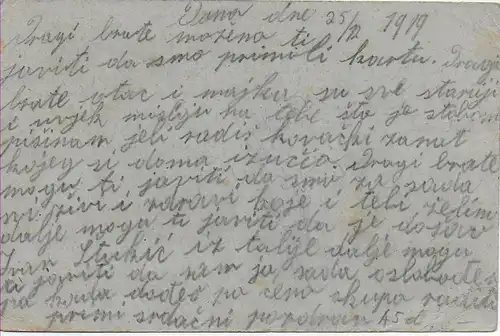 Dana dne 25/II 1919
Dragi brate možemo ti
javiti da smo primili kartu. Dragi
brate otac i majka su sve stariji
i uvjek misliju na tebe što je stobom
pišinam jeli radiš kovački zanat
kojeg si doma izučio. Dragi brate
mogu ti javiti da smo za sada
svi živi i zdravi koje i tebi želim
dalje mogu ti javiti da je došao
Ivan iz talije dalje mogu
ti javiti da nam ja sada
pa kada dođeš po ceno skupa
primi srdačni pozdrav